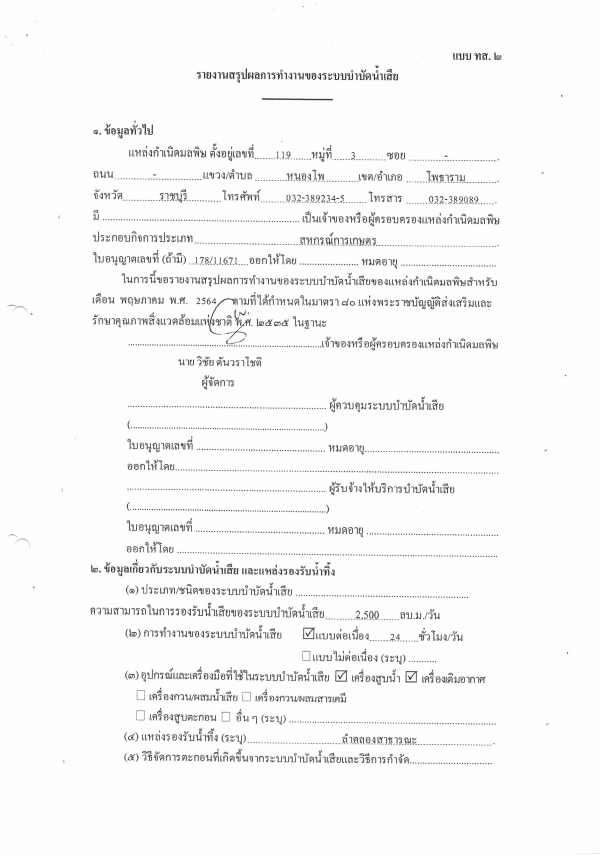 แบบ ทส. ๒
รายงานสรุปผลการทำงานของระบบบำบัดน้ำเสีย
๑. ข้อมูลทั่วไป
แหล่งกำเนิดมลพิษ ตั้งอยู่เลขที่ 119 หมู่ที่ 3 ซอย -
ถนน - แขวง/ตำบล หนองโพ เขต/อำเภอ โพธาราม
จังหวัด ราชบุรี โทรศัพท์ 032-389234-5 โทรสาร 032-389089
มี ........ เป็นเจ้าของหรือผู้ครอบครองแหล่งกำเนิดมลพิษ
ประกอบกิจการประเภท สหกรณ์การเกษตร
ใบอนุญาตเลขที่ (ถ้ามี) 178/11671 ออกให้โดย ........ หมดอายุ ........
ในการนี้ขอรายงานสรุปผลการทำงานของระบบบำบัดน้ำเสียของแหล่งกำเนิดมลพิษสำหรับ
เดือน พฤษภาคม พ.ศ. 2564 ตามที่ได้กำหนดในมาตรา ๘๐ แห่งพระราชบัญญัติส่งเสริมและ
รักษาคุณภาพสิ่งแวดล้อมแห่งชาติ พ.ศ. ๒๕๓๕ ในฐานะ
........เจ้าของหรือผู้ครอบครองแหล่งกำเนิดมลพิษ
นาย วิชัย ตันวราโชติ
ผู้จัดการ
........ ผู้ควบคุมระบบบำบัดน้ำเสีย
(........)
ใบอนุญาตเลขที่ ........ หมดอายุ........
ออกให้โดย........
........ ผู้รับจ้างให้บริการบำบัดน้ำเสีย
(........)
ใบอนุญาตเลขที่ ........ หมดอายุ ........
ออกให้โดย ........
๒. ข้อมูลเกี่ยวกับระบบบำบัดน้ำเสีย และแหล่งรองรับน้ำทิ้ง
(๑) ประเภท/ชนิดของระบบบำบัดน้ำเสีย ........
ความสามารถในการรองรับน้ำเสียของระบบบำบัดน้ำเสีย 2,500 ลบ.ม./วัน
(๒) การทำงานของระบบบำบัดน้ำเสีย ☑แบบต่อเนื่อง 24 ชั่วโมง/วัน
☐แบบไม่ต่อเนื่อง (ระบุ) ........
(๓) อุปกรณ์และเครื่องมือที่ใช้ในระบบบำบัดน้ำเสีย ☑ เครื่องสูบน้ำ ☑ เครื่องเติมอากาศ
☐ เครื่องกวน/ผสมน้ำเสีย ☐ เครื่องกวน/ผสมสารเคมี
☐ เครื่องสูบตะกอน ☐ อื่น ๆ (ระบุ) ........
(๔) แหล่งรองรับน้ำทิ้ง (ระบุ) ลำคลองสาธารณะ
(๕) วิธีจัดการตะกอนที่เกิดขึ้นจากระบบบำบัดน้ำเสียและวิธีการกำจัด........